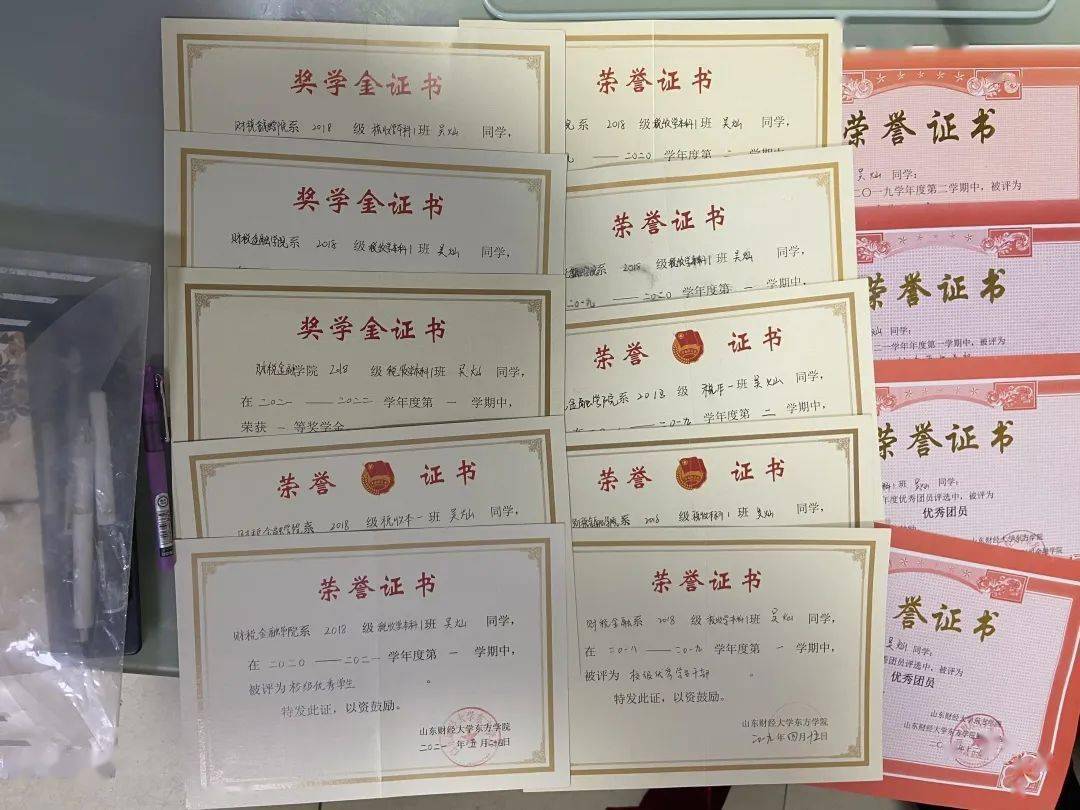 奖学金证书
财税金融学院系 2018 级税收学本科1班 吴灿 同学，
奖学金证书
财税金融学院系 2018 级税收学本科1班 吴灿 同学，
奖学金证书
财税金融学院 2018 级税收学本科1班 吴灿 同学，
在二〇二一 —— 二〇二二 学年度第 一 学期中，
荣获 一 等奖学金
荣誉 证书
财税金融学院系 2018 级税收本一班 吴灿 同学，
荣誉证书
财税金融学院系 2018 级税收学本科1班 吴灿 同学，
在 二〇二〇 —— 二〇二一 学年度第 一 学期中，
被评为校级优秀学生 。
特发此证，以资鼓励。
山东财经大学东方学院
二〇二一 年 五 月 日
荣誉证书
院系 2018 级税收学本科1班 吴灿 同学，
九 —— 二〇二〇 学年度第 二 学期中
荣誉证书
系 2018 级税收学本科1班 吴灿 同学，
二〇一九 —— 二〇二〇 学年度第 一 学期中，
荣誉 证书
金融学院系 2018 级 税本一班 吴灿 同学，
二〇一九 学年度第 二 学期中，
荣誉 证书
财税金融学院系 2018 级税收本科1班 吴灿 同学，
荣誉证书
财税金融系 2018 级税收学本科1班 吴灿 同学，
在 二〇一八 —— 二〇一九 学年度第 一 学期中，
被评为 校级优秀学生干部 。
特发此证，以资鼓励。
山东财经大学东方学院
二〇一九 年 四 月 日
荣誉证书
吴灿 同学：
二〇一九学年度第二学期中，被评为
荣誉证书
灿 同学：
二一学年年度第一学期中，被评为
荣誉证书
班 吴灿 同学：
年度优秀团员评选中，被评为
优秀团员
山东财经大学东方学院
誉证书
吴灿 同学：
秀团员评选中，被评为
优秀团员
山东财经大学东方学院